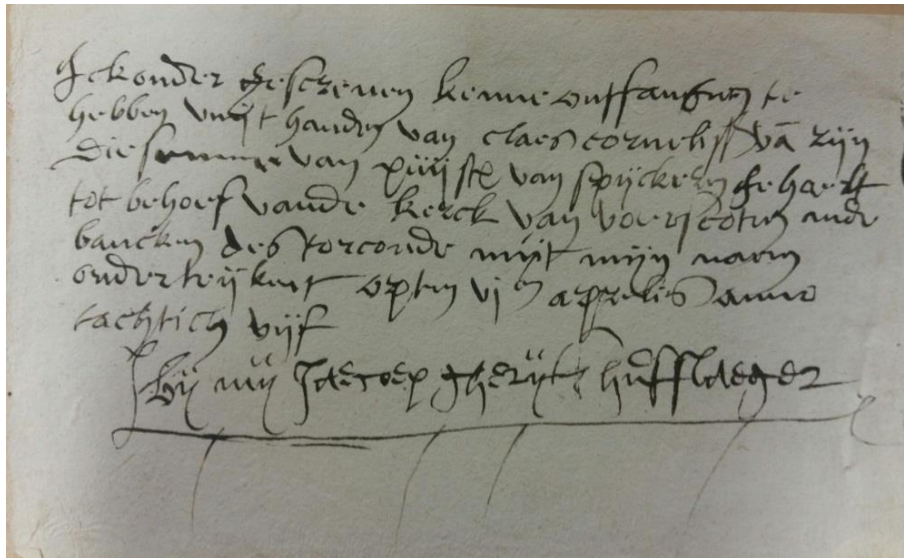 Ick onder gescreven kenne ontfangen te
hebben uuijt handen van claes corneliss vā rijn
die somme van xviij st van spijckers gehaelt
tot behoef vande kerck van voerscoten ande
bancken des t'orconde mijt mijn naem
onderteijkent opten vj en apprelis anno
tachtich vijff
bij mij Jaecoep gherijtz hoffslaeger